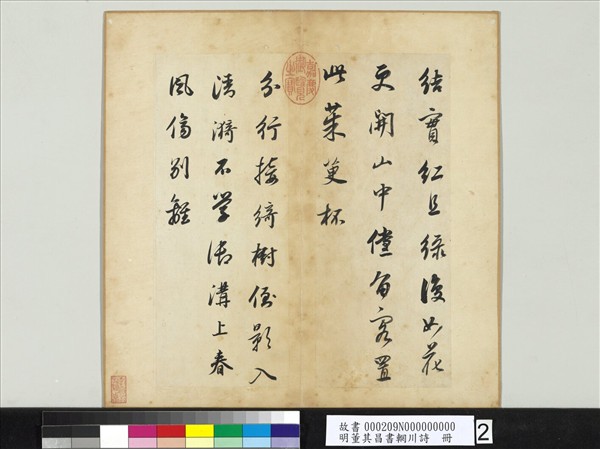 結實紅且綠復如花
更開山中儻留客置
此茱萸杯
分行接綺樹倒影入
清漪不學御溝上春
風傷別離
嘉慶御覽之寶
故書 000209N000000000
明董其昌書輞川詩 冊
2